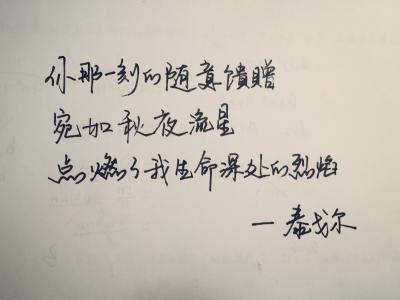 你那一刻的随意馈赠
宛如秋夜流星
点燃了我生命深处的烈焰
一泰戈尔